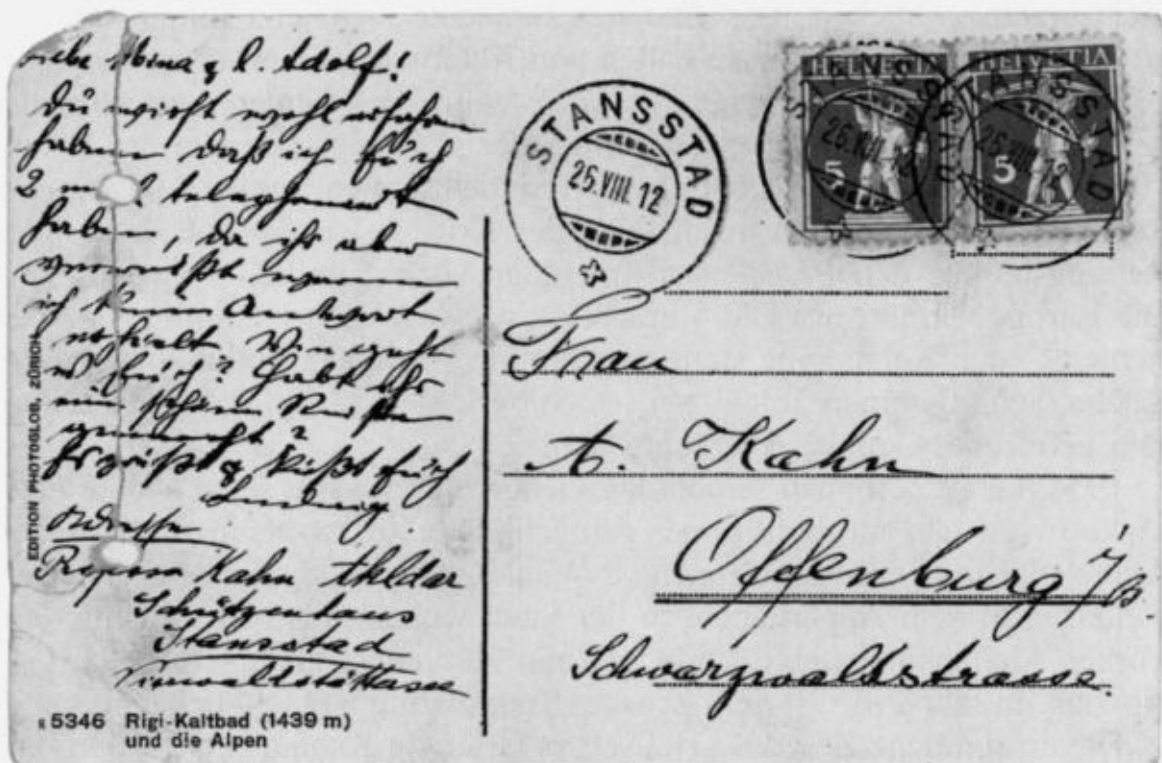 Liebe Mina & l. Adolf!
Du wirst wohl erfahren
haben daß ich Euch
2 mal telephoniert
haben, da ihr aber
verreißt waren
ich kein Antwort
erhielt. Wie geht
es Euch? Habt ihr
eine schöne Reise
gemacht?
Es grüßt & küßt Euch
Ludwig
Adresse
Kahn
Schützenhaus
Stansstad
Vierwaldstättersee
EDITION PHOTOGLOB, ZÜRICH
5346 Rigi-Kaltbad (1439 m)
und die Alpen
STANSSTAD
26.VIII.12
HELVETIA
5
HELVETIA
5
STANSSTAD
26.VIII.12
STANSSTAD
26.VIII.12
Frau
A. Kahn
Offenburg i/B
Schwarzwaldstrasse.